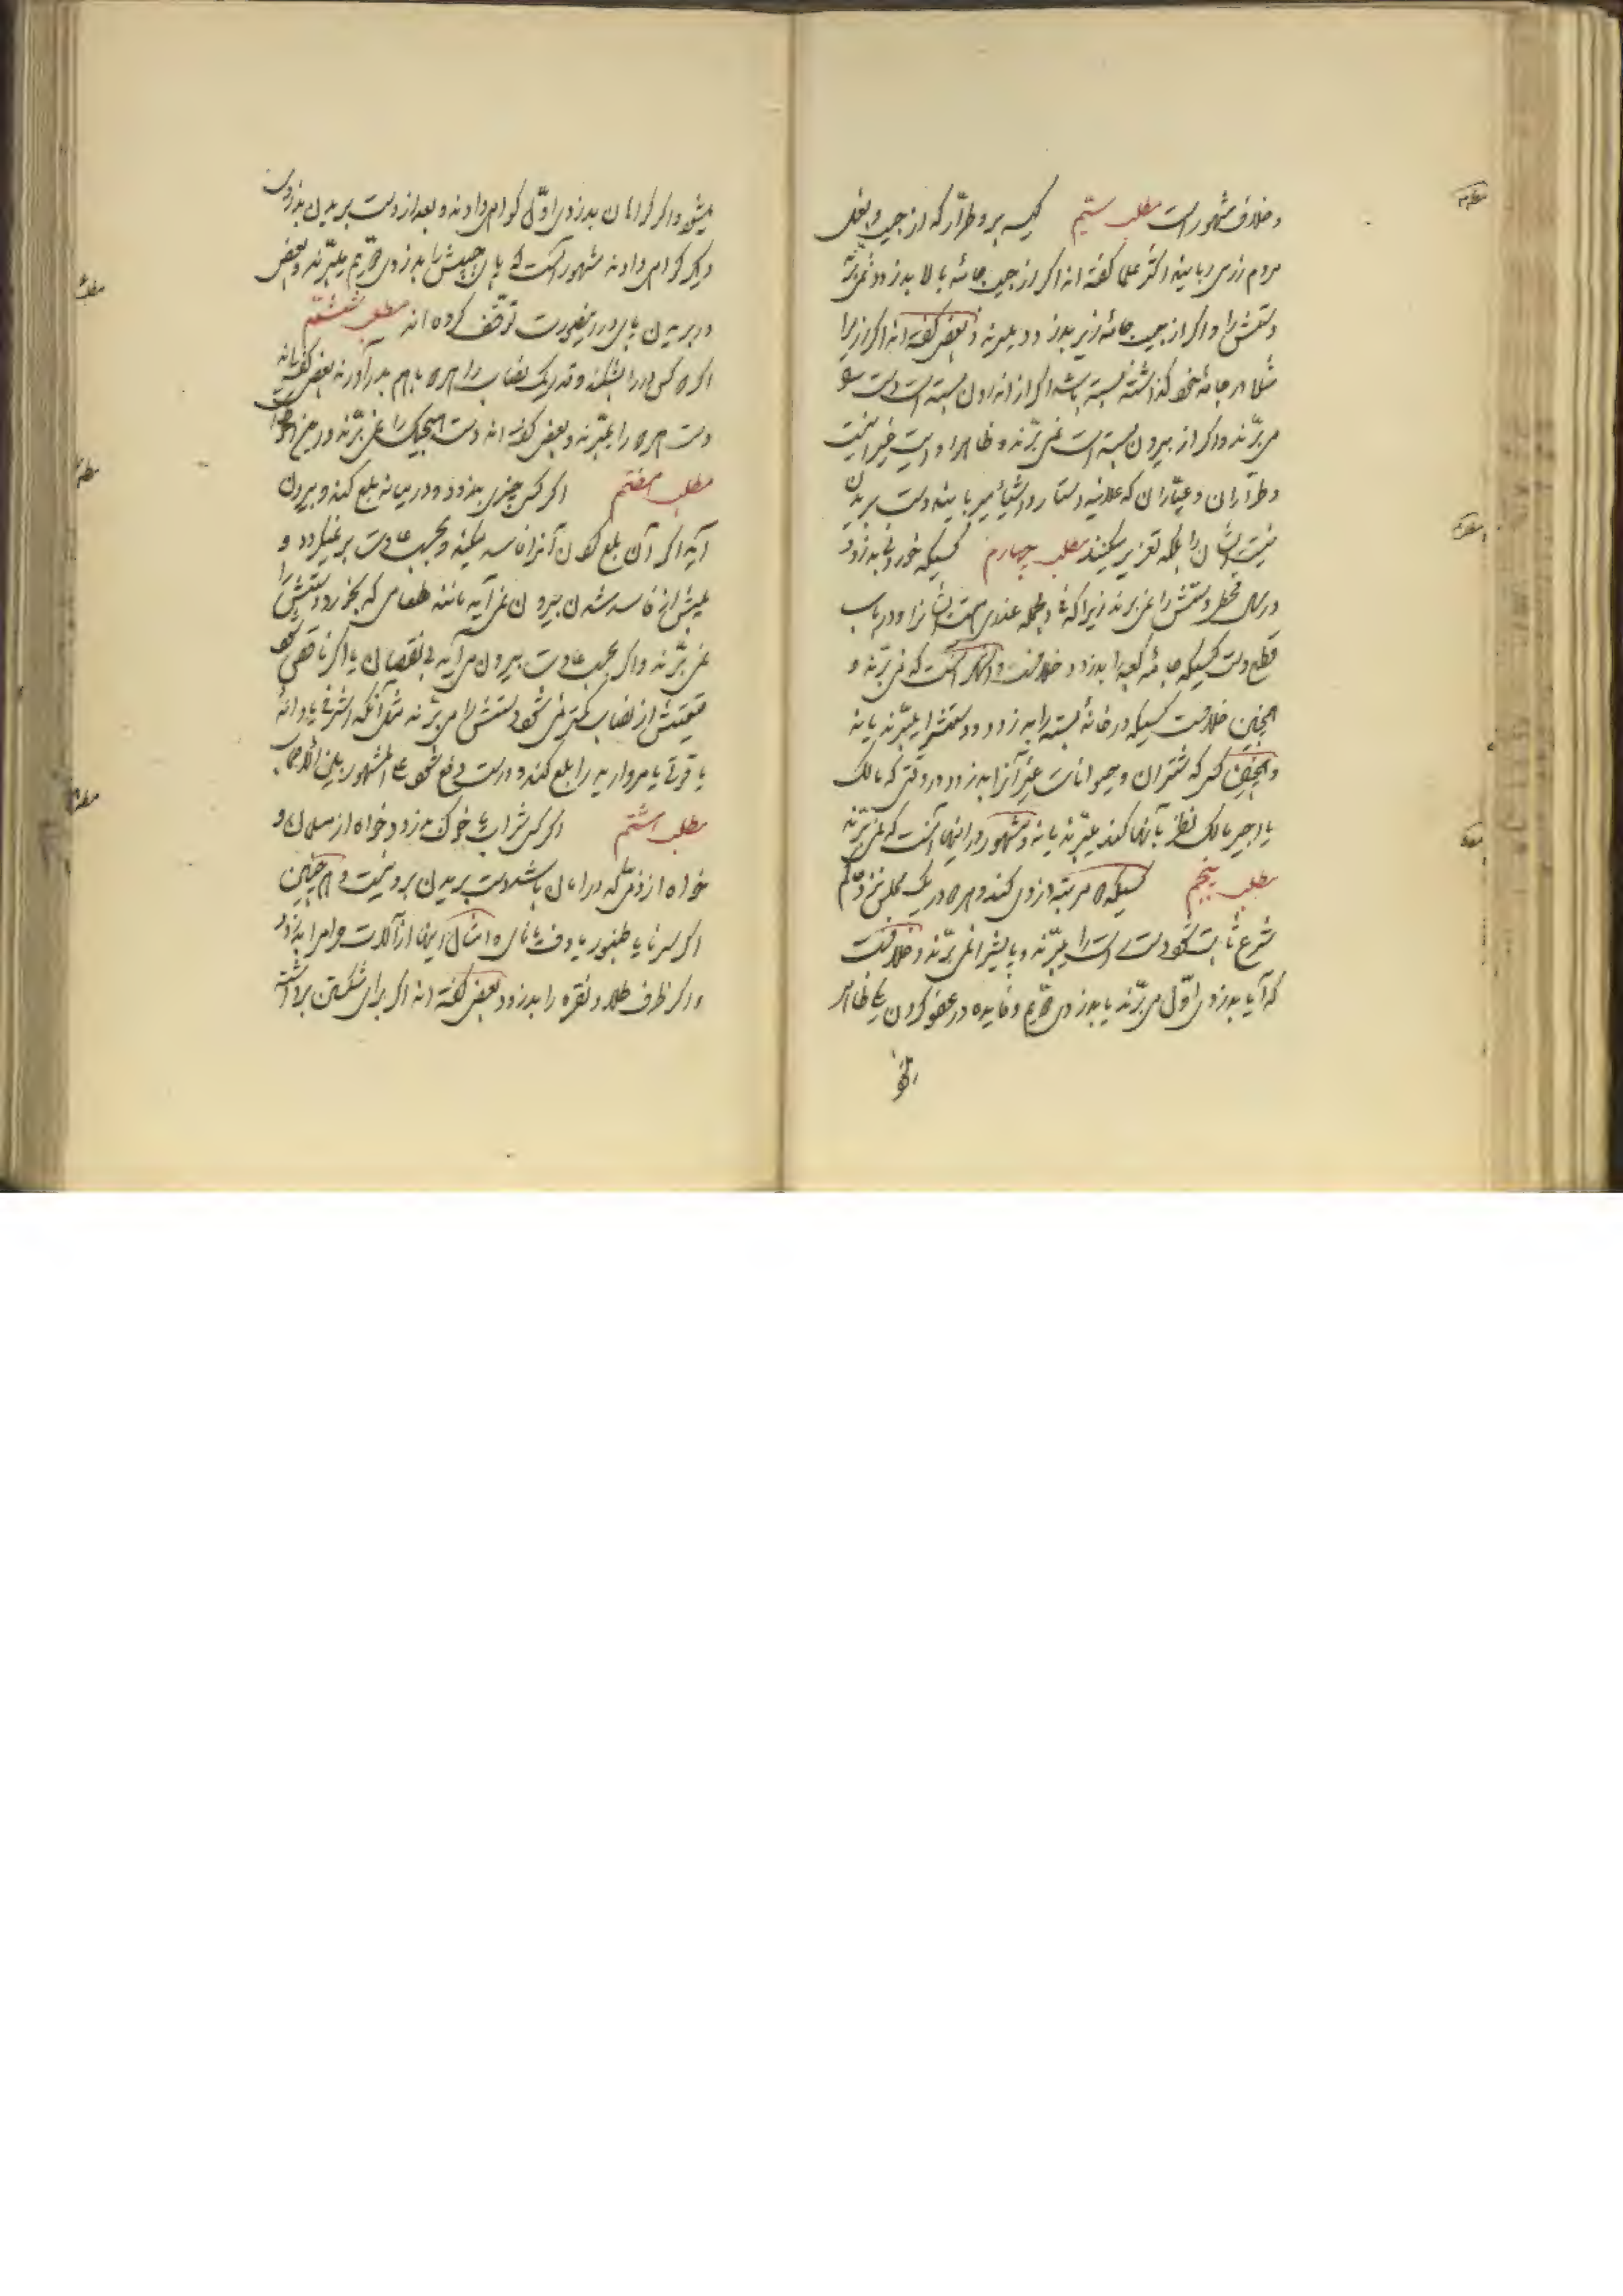 و خلاف مشهور است مطلب سیّم کیسه بر و طرّار که از جیب و بغل
مردم زر می ربایند اکثر علما گفته اند اگر از جیب جامهٔ بالا بدزدد نمی برّند
دستش را و اگر از جیب جامهٔ زیر بدزدد میبرند و بعضی گفته اند اگر زر را
مثلا در جامهٔ خود گذاشته بسته باشد اگر از اندرون بسته است دست
می برّند و اگر از بیرون بسته است نمی برّند و ظاهر روایت نیز اینست
و طرّاران و عیّاران که علانیه دستار و اشیا میربایند دست بریدن
نیست ایشان را بلکه تعزیر میکنند مطلب چهارم کسیکه خوردنی بدزدد
در سال قحط دستش را نمی برند زیرا که فی الجمله عذری هست ایشانرا و در باب
قطع دست کسیکه جامهٔ کعبه را بدزدد خلافست و اظهر آنست که نمی برّند و
همچنین خلافست کسیکه در خانهٔ بسته را بدزدد دستش را میبرّند یا نه
و همچنین کسی که شتران و حیوانات غیر آنرا بدزدد در وقتی که مالک
یا اجیر مالک نظر بآنها کند میبرّند یا نه و مشهور در اینها آنست که نمی برّند
مطلب پنجم کسیکه دو مرتبه دزدی کند و هر دو در یک مجلس نزد حاکم
شرع ثابت شود دست راست را میبرّند و پایش را نمی برّند و خلافست
که آیا بدزدی اوّل می برّند یا بدزدی دویم و فایده در عفو کردن یکی ظاهر
میشود و اگر گواهان بدزدی اوّل گواهی دادند و بعد از دست بریدن بدزدی
دیگر گواهی دادند مشهور آنست که پای چپش را بدزدی دویم میبرّند و بعضی
در بریدن پا در اینصورت توقّف کرده اند مطلب ششم
اگر دو کس در را بشکنند و قدر یک نصاب را هر دو با هم بدر آورند بعضی گفته اند
دست هر دو را میبرّند و بعضی گفته اند دست هیچیک را نمی برّند و این احوط است
مطلب هفتم اگر کسی چیزی بدزدد و در میانه بلع کند و بیرون
آید اگر آن بلع کردن آنرا فاسد میکند و بحسب عادت بر نمیگردد و
پیش از فاسد شدن بیرون نمی آید مانند طعامی که بخورد دستش را
نمی برّند و اگر بحسب عادت بیرون می آید بی نقصان یا اگر ناقص شود
قیمتش از نصاب کمتر نمی شود دستش را می برّند مثل آنکه اشرفی یا دانهٔ
یاقوتی یا مرواریدی را بلع کند و درست دفع شود علی المشهور بین الاصحاب
مطلب هشتم اگر کسی شراب یا خوک بدزدد خواه از مسلمان و
خواه از ذمّی که در امان باشد دست بریدن بر او نیست و همچنین
اگر سرنا یا طنبور یا دف یا نای و امثال اینها از آلات حرام را بدزدد
و اگر ظرف طلا و نقره را بدزدد بعضی گفته اند اگر برای شکستن برداشته